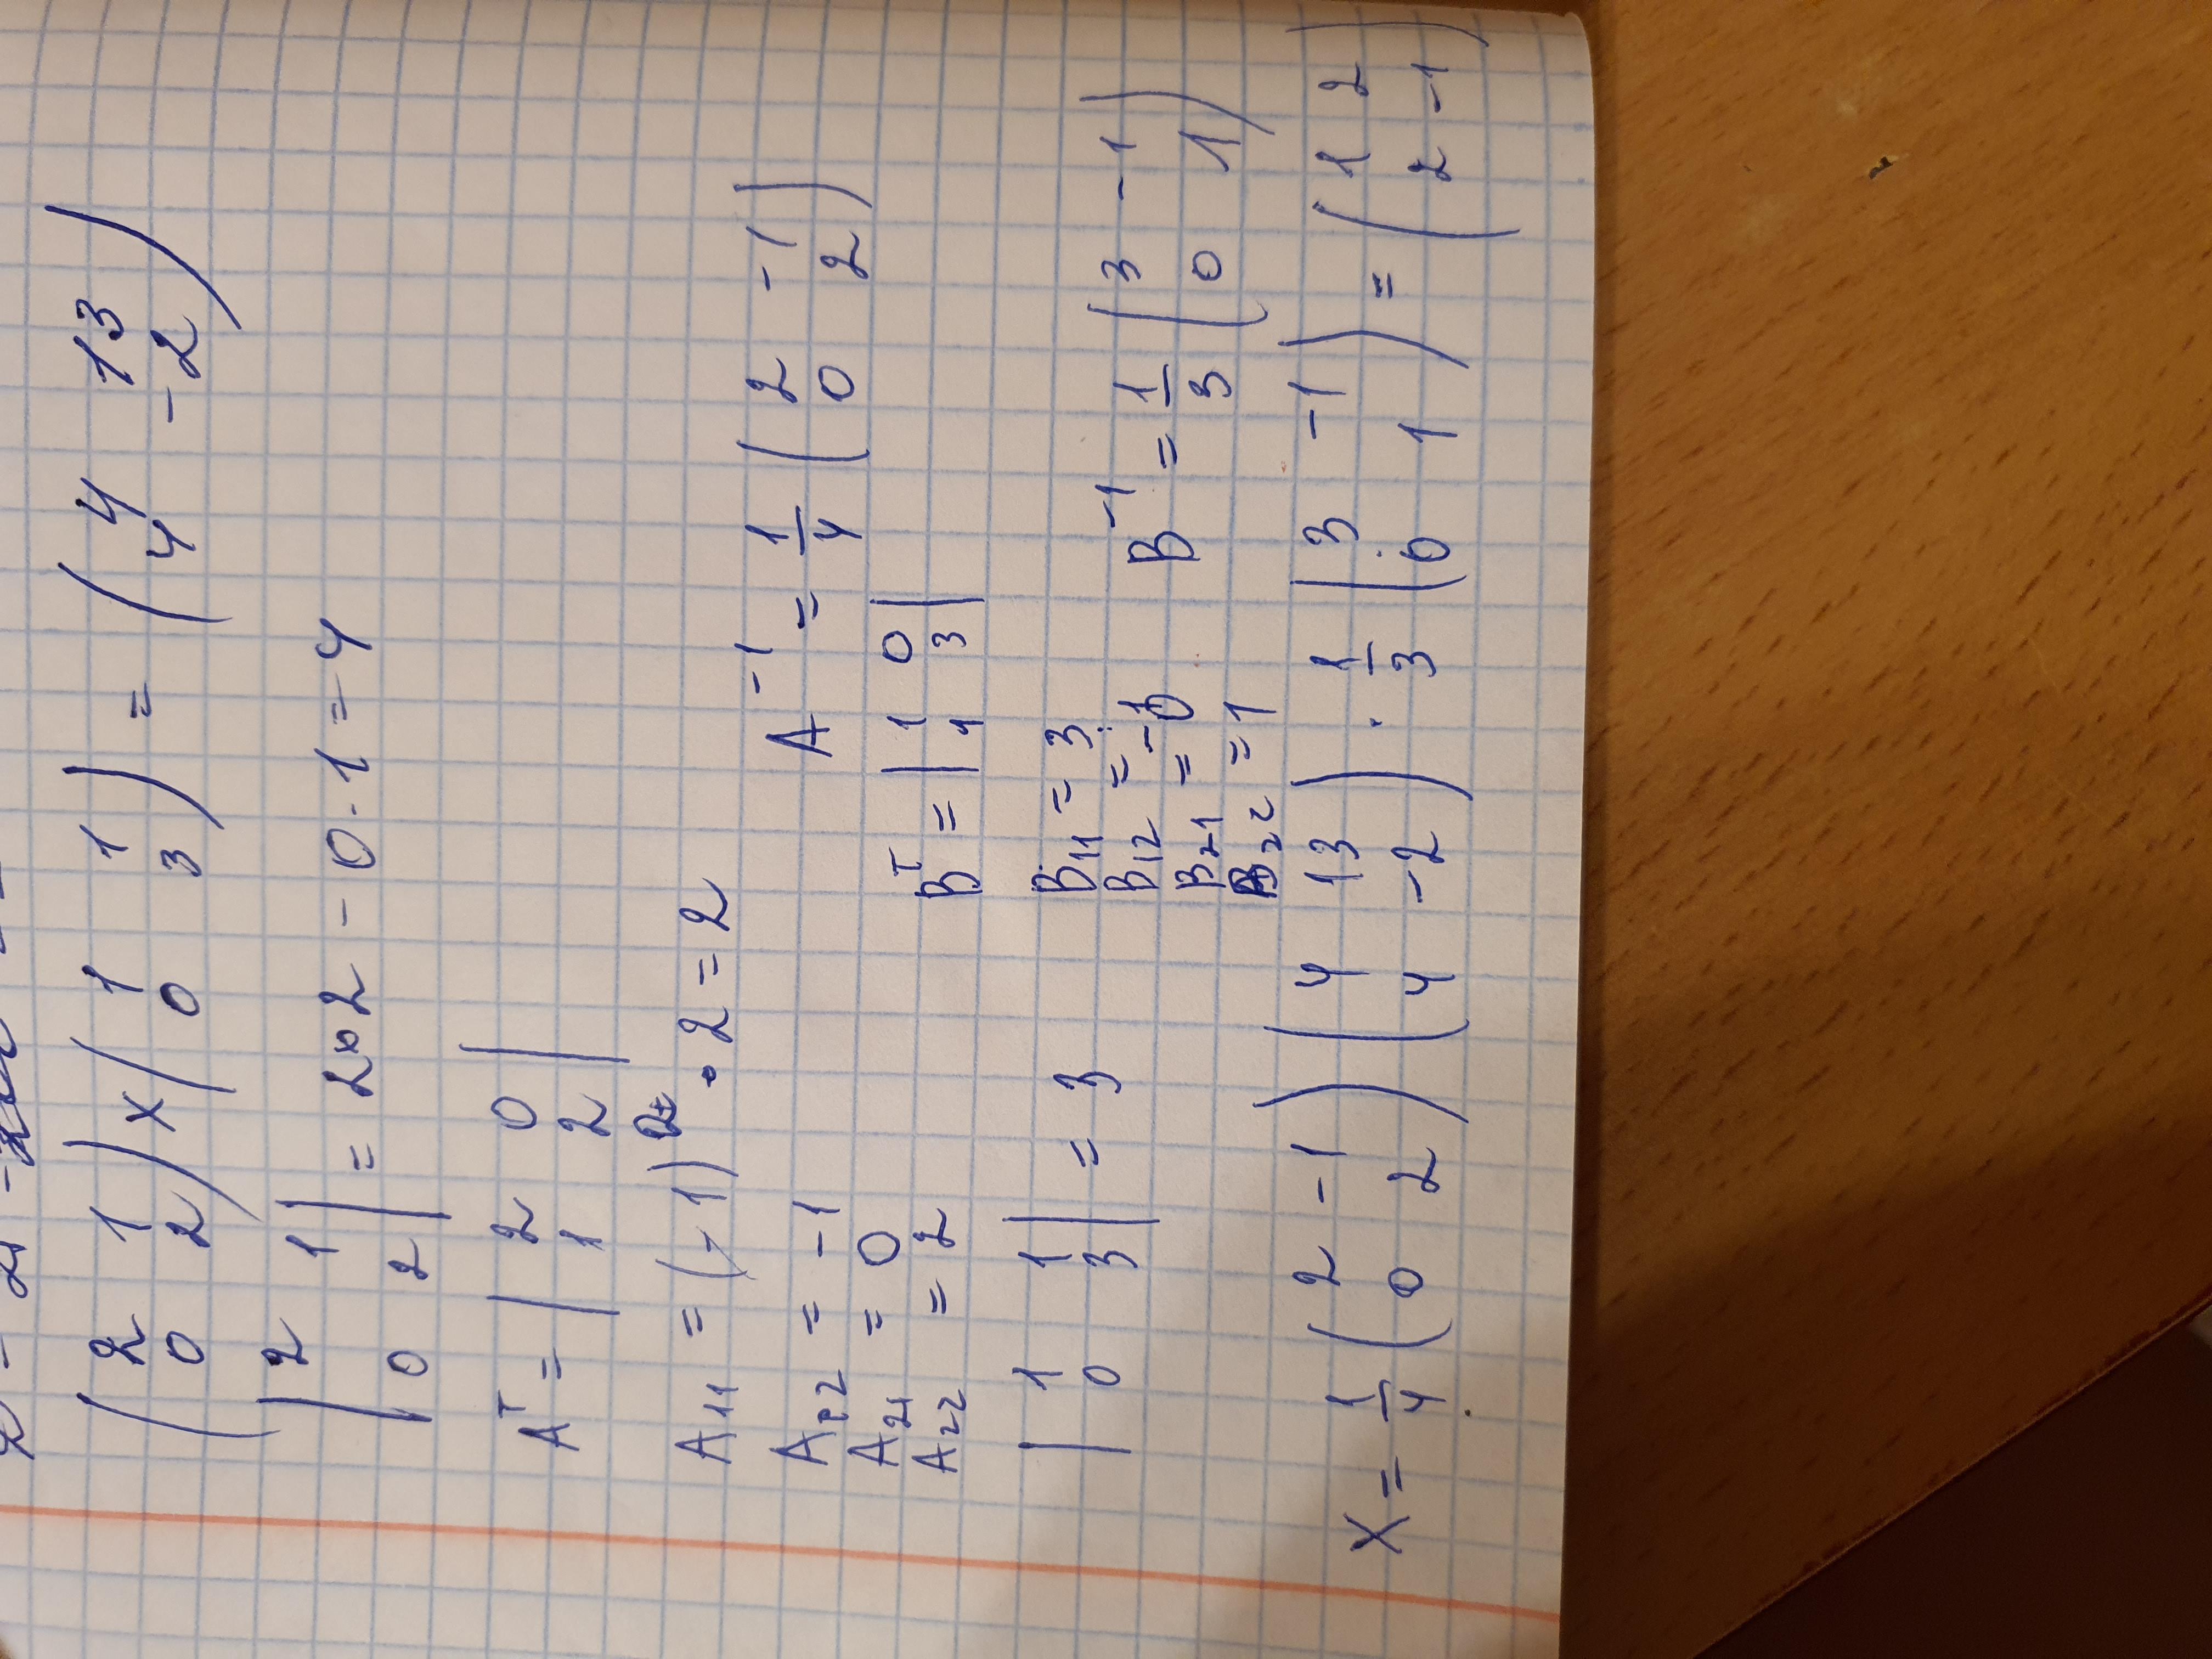 ( 2 1 0 2 ) X ( 1 1 0 3 ) = ( 4 13 4 -2 )
| 2 1 0 2 | = 2·2 - 0·1 = 4
Aᵀ = | 2 0 1 2 |
A₁₁ = (-1) · 2 = 2
A₁₂ = -1
A₂₁ = 0
A₂₂ = 2
A⁻¹ = 1/4 ( 2 -1 0 2 )
| 1 1 0 3 | = 3
Bᵀ = | 1 0 1 3 |
B₁₁ = 3
B₁₂ = -1
B₂₁ = 0
B₂₂ = 1
B⁻¹ = 1/3 ( 3 -1 0 1 )
X = 1/4 ( 2 -1 0 2 ) ( 4 13 4 -2 ) · 1/3 ( 3 -1 0 1 ) = ( 1 2 2 -1 )